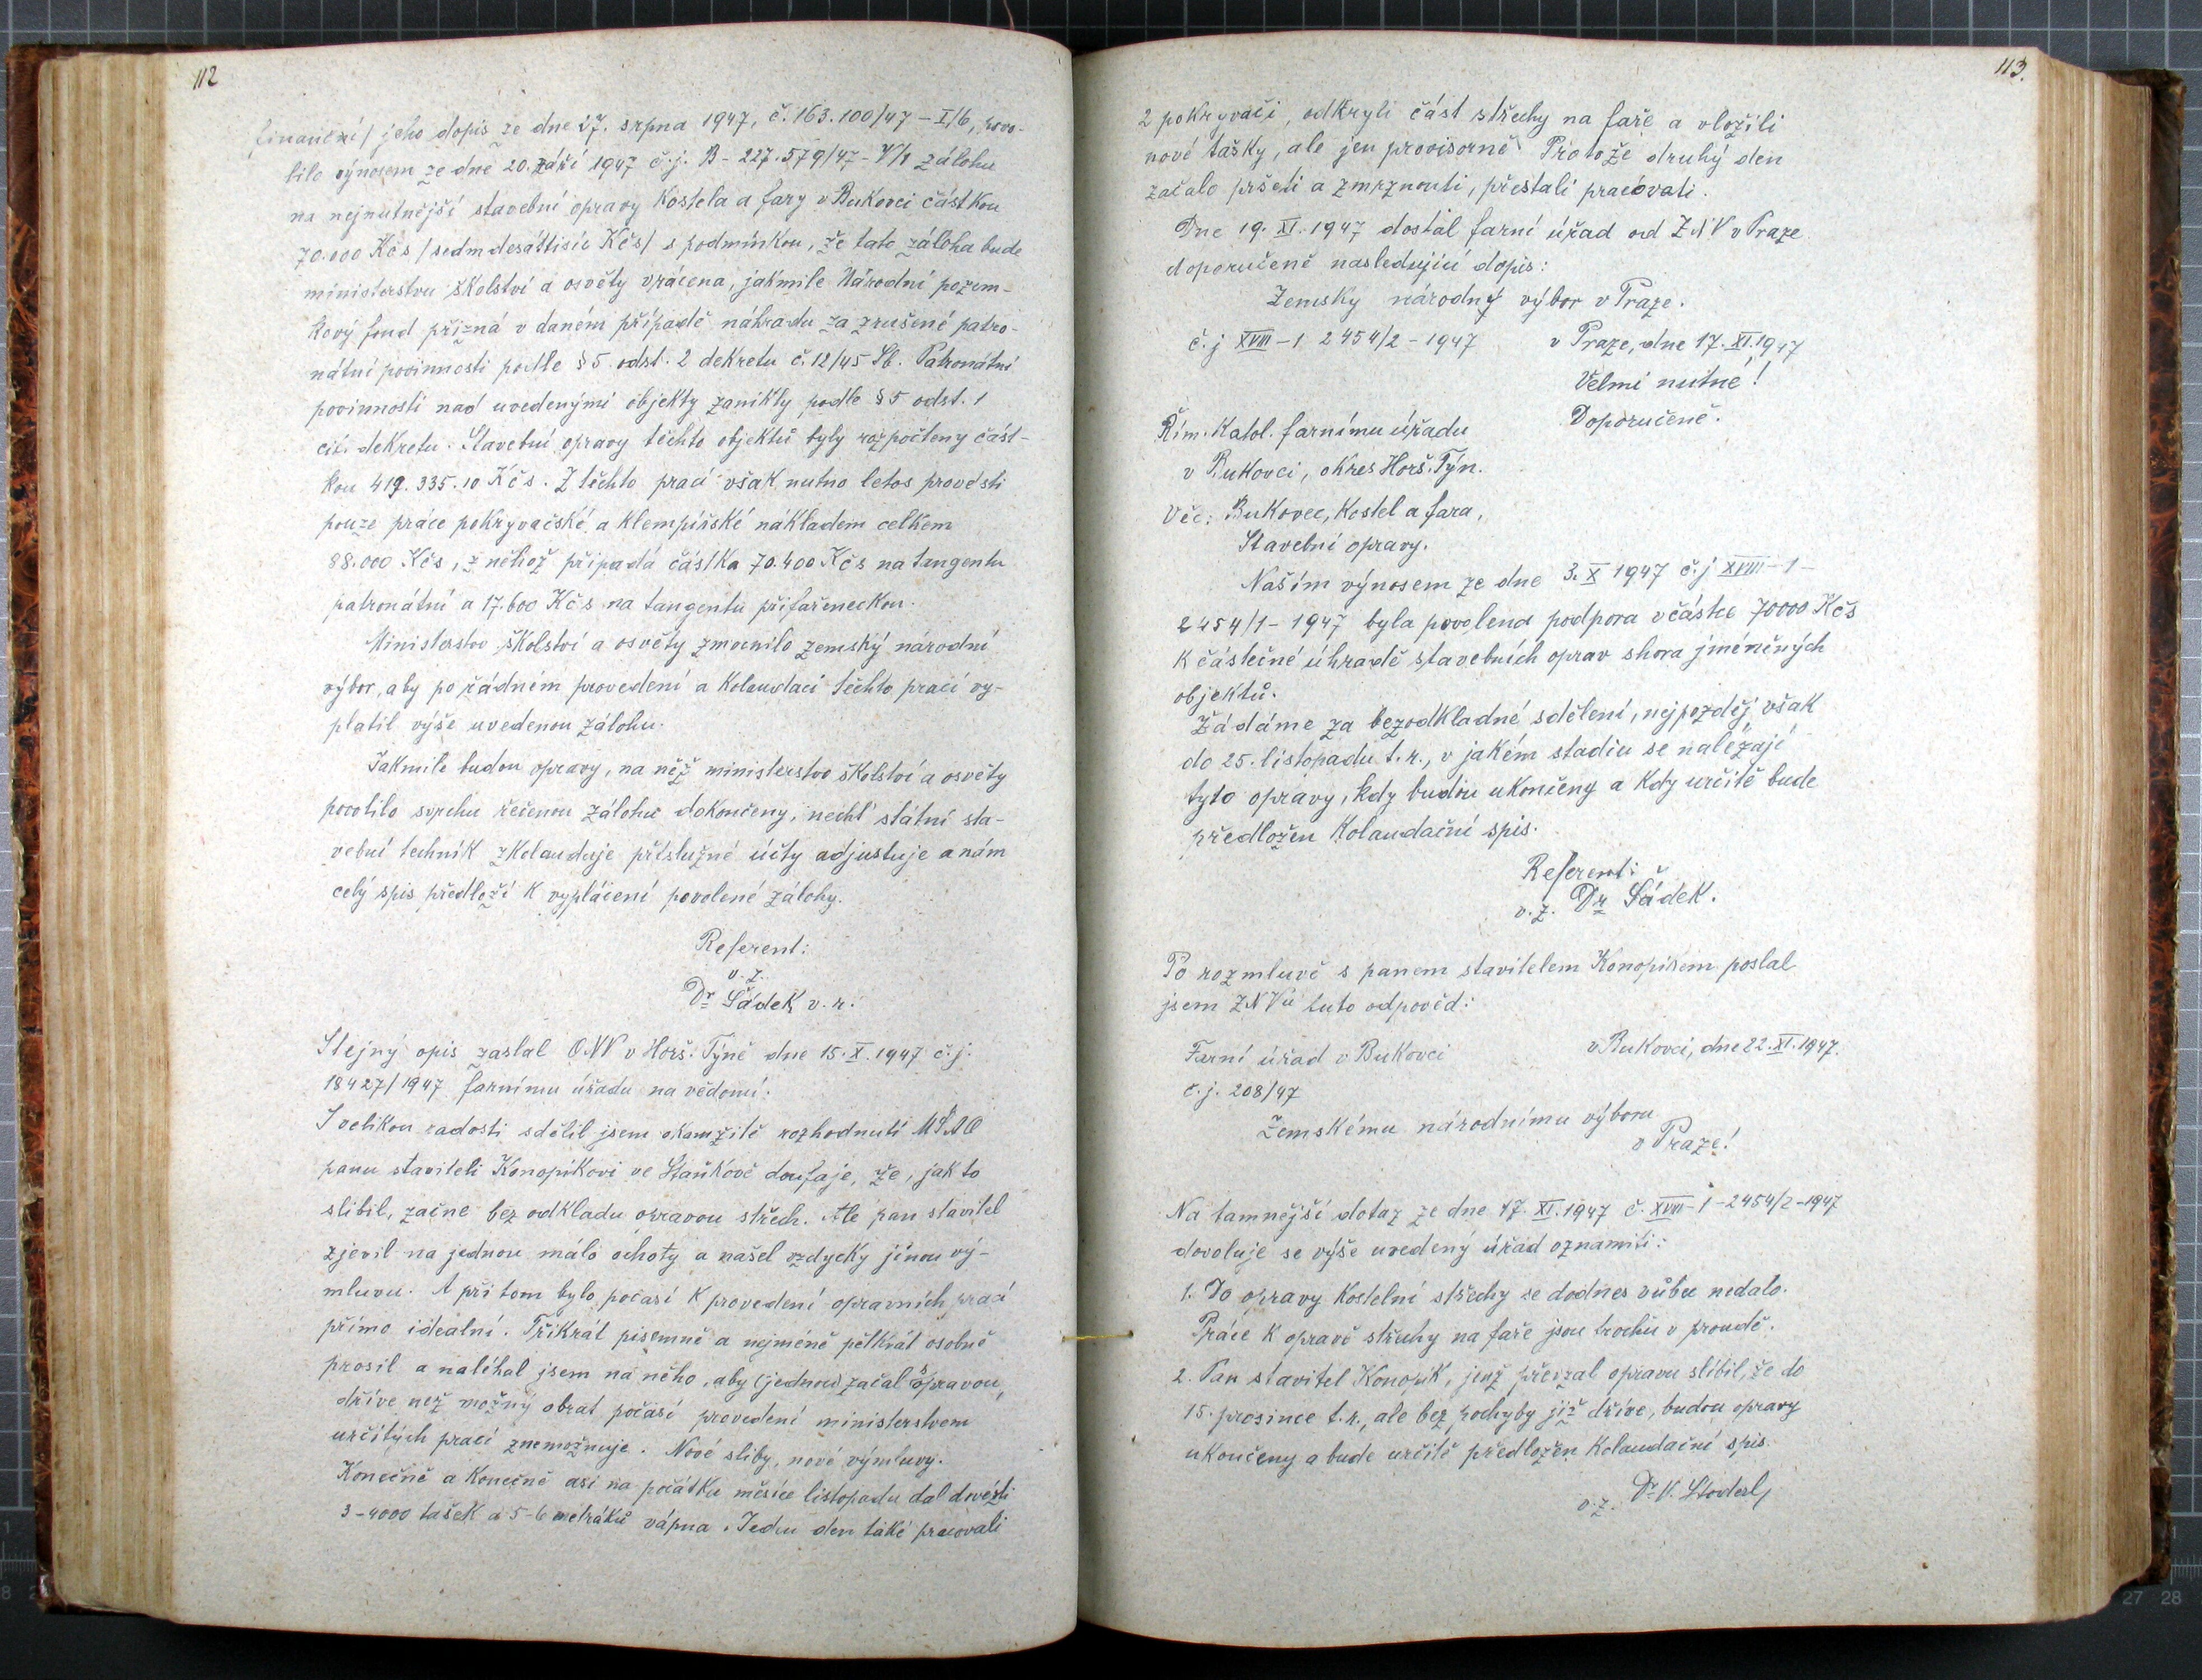 112
finanční/ jeho dopis ze dne 27. srpna 1947, č. 163.100/47 – I/6, povo-
lilo výnosem ze dne 20. září 1947 č.j. B – 227.579/47 – V/2 zálohu
na nejnutnější stavební opravy kostela a fary v Bukovci částkou
70.000 Kčs /sedmdesáttisíc Kčs/ s podmínkou, že tato záloha bude
ministerstvu školství a osvěty vrácena, jakmile Národní pozem-
kový fond přizná v daném případě náhradu za zrušené patro-
nátní povinnosti podle § 5 odst. 2 dekretu č. 12/45 Sb. Patronátní
povinnosti nad uvedenými objekty zanikly podle § 5 odst. 1
cit. dekretu. Stavební opravy těchto objektů byly rozpočteny část-
kou 419.335.10 Kčs. Z těchto prací však nutno letos provésti
pouze práce pokryvačské a klempířské nákladem celkem
88.000 Kčs, z něhož připadá částka 70.400 Kčs na tangentu
patronátní a 17.600 Kčs na tangentu přifařeneckou.
Ministerstvo školství a osvěty zmocnilo zemský národní
výbor, aby po řádném provedení a kolaudaci těchto prací vy-
platil výše uvedenou zálohu.
Jakmile budou opravy, na něž ministerstvo školství a osvěty
povolilo svrchu řečenou zálohu dokončeny, nechť státní sta-
vební technik zkolauduje příslužné účty adjustuje a nám
celý spis předloží k vyplácení povolené zálohy.
Referent:
v. z.
Dr Šádek v. r.
Stejný opis zaslal ONV v Horš. Týně dne 15. X. 1947 č.j.
18427/1947 farnímu úřadu na vědomí.
S velikou radosti sdělil jsem okamžitě rozhodnutí MŠAO
panu staviteli Konopíkovi ve Staňkově doufaje, že, jak to
slíbil, začne bez odkladu opravou střech. Ale pan stavitel
zjevil na jednou málo ochoty a našel vzdycky jinou vý-
mluvu. A při tom bylo počasí k provedení opravních prací
přímo idealní. Třikrát písemně a nejméně pětkrát osobně
prosil a naléhal jsem na něho, aby (jednou) začal s opravou,
dříve než možný obrat počasí provedení ministerstvem
určitých prací znemožnuje. Nové sliby, nové výmluvy.
Konečně a konečně asi na počátku měsíce listopadu dal dovézti
3–4000 tašek a 5–6 metráků vápna. Jedn den také pracovali
113.
2 pokryvači, odkryli část střechy na faře a vložili
nové tašky, ale jen provisorně. Protože druhý den
začalo pršeti a zmrznouti, přestali pracovati.
Dne 19. XI. 1947 dostal farní úřad od ZNV v Praze
doporučeně nasledující dopis:
Zemsky národný výbor v Praze.
č. j XVIII – 1 2454/2 – 1947 v Praze, dne 17. XI. 1947
Velmi nutné!
Řím. katol. farnímu úřadu Doporučeně.
v Bukovci, okres Horš. Týn.
Věc: Bukovec, kostel a fara,
Stavební opravy.
Naším výnosem ze dne 3. X 1947 č.j XVIII – 1 –
2454/1 – 1947 byla povolena podpora v částce 70000 Kčs
k částečné úhradě stavebních oprav shora jméněných
objektů.
Žádáme za bezodkladné sdělení, nejpozděj však
do 25. listopadu t. r., v jakém stadiu se naležají
tyto opravy, kdy budou ukončeny a kdy určitě bude
předložen kolaudační spis.
Referent:
v. z. Dr Šádek.
Po rozmluvě s panem stavitelem Konopíkem poslal
jsem ZNVu tuto odpověd:
Farní úřad v Bukovci v Bukovci, dne 22. XI. 1947.
č. j. 208/47
Zemskému národnímu výboru
v Praze!
Na tamnější dotaz ze dne 17. XI. 1947 č. XVIII – 1 – 2454/2 – 1947
dovoluje se výše uvedený úřad oznamiti:
1. Do opravy kostelní střechy se dodnes vůbec nedalo.
Práce k opravě střechy na faře jsou trochu v proudě.
2. Pan stavitel Konopík, jenž převzal opravu slíbil, že do
15. prosince t. r., ale bez pochyby již dříve, budou opravy
ukončeny a bude určitě předložen kolaudační spis.
v. z. Dr V.